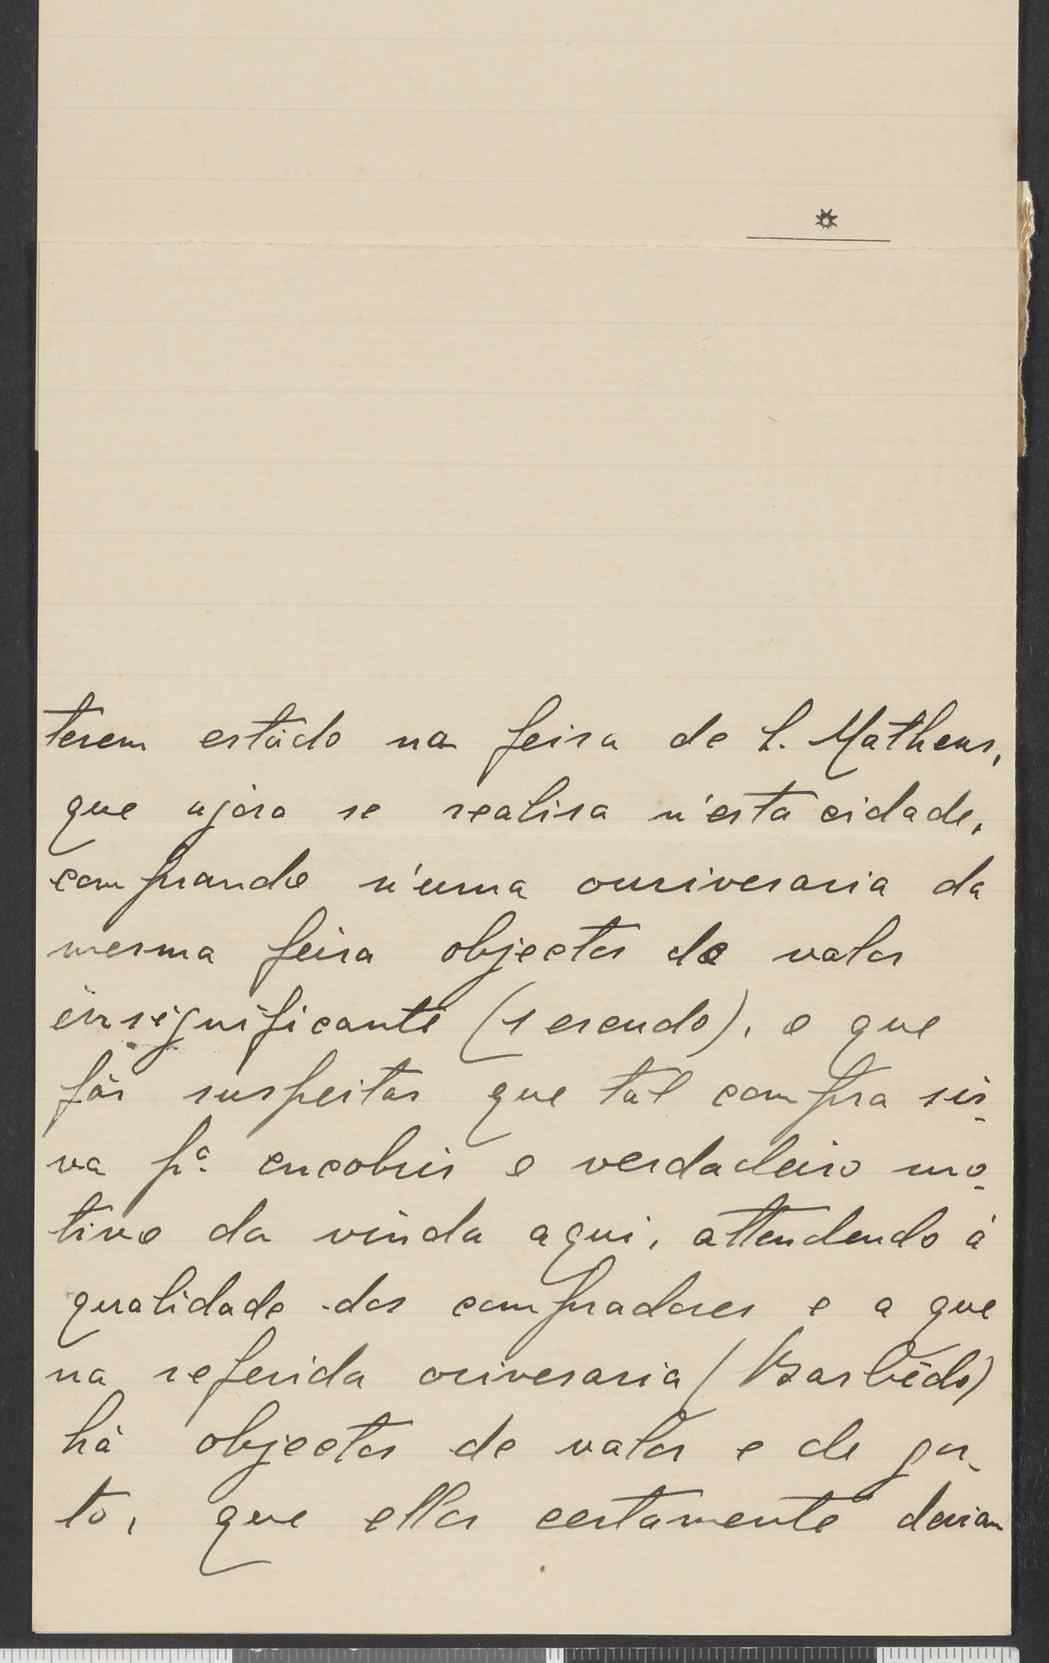 *
terem estádo na feira de S. Matheus,
que agora se realisa n'esta cidade,
comprando n'uma ouriversaria da
mesma feira objectos de valor
insignificante (1 escudo), o que
fás suspeitar que tal compra sir-
va p.ª encobrir o verdadeiro mo-
tivo da vinda aqui, attendendo á
qualidade dos compradores e a que
na referida oriversaria (Barbêdo)
há objectos de valor e de gos-
to, que elles certamente